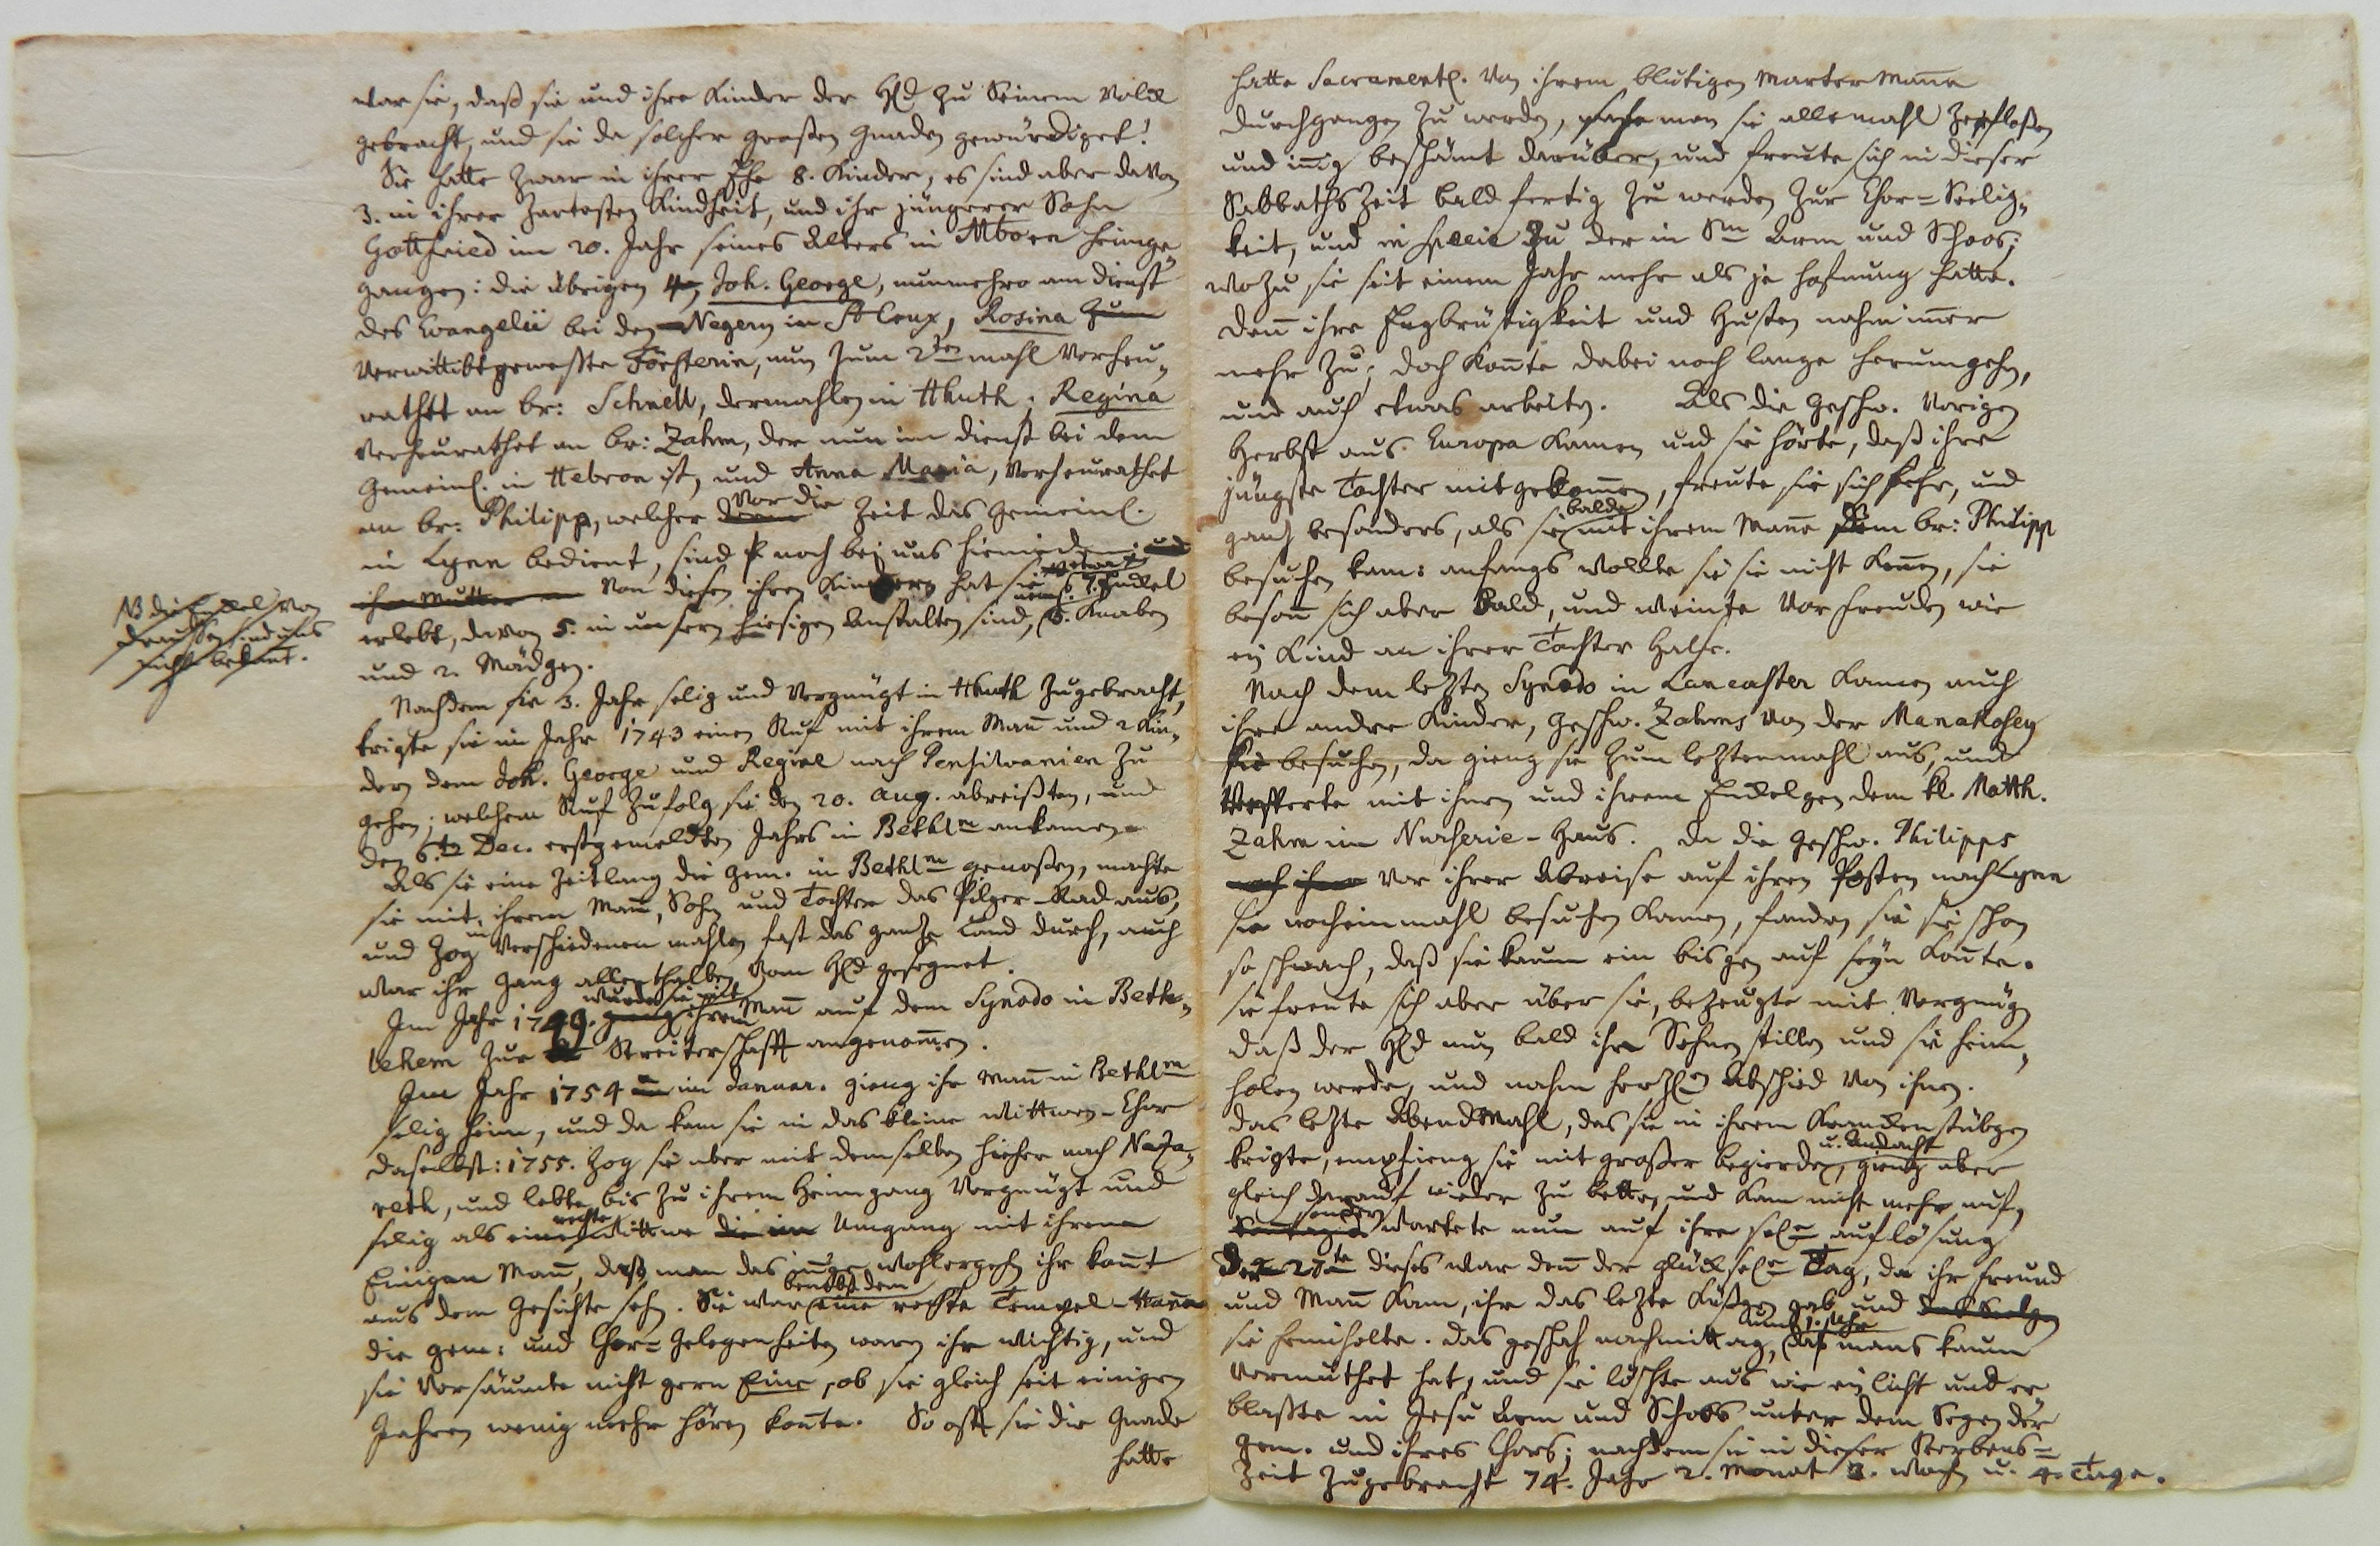 war sie, daß sie und ihre Kinder der Hld zu Seinem Volck
gebracht, und sie da solcher großen Gnaden gewürdiget!
Sie hatte zwar in ihrer Ehe 8. Kinder, es sind aber davon
3. in ihrer zartesten Kindheit, und ihr jüngerer Sohn
Gottfried im 20. Jahr seines Alters in Mboen heimge„
gangen: die übrigen 4, Joh. George, nunmehro am Dienst
des Evangelii bei den Negern in St Crux, Rosina zum
verwittibt geweßte Försterin, nun zum 2ten mahl verheu„
rathet an br: Schnell, dermahlen in Hhuth; Regina
verheurathet an br: Zahm, der nun im Dienst bei dem
Gemeinl. in Hebron ist, und Anna Maria, verheurathet
an br: Philipp, welcher vor die Zeit das Gemeinl.
in Lynn bedient, sind noch bei uns hienieden. und
ihre Mutter Von diesen ihren Kindern hat sie 7. Enckel
erlebt, davon 5. in unsern hiesigen Anstalten sind, 3. Knaben
und 2. Mädgen.
NB die Enckel von
draussen sind uns
nicht bekant.
Nachdem sie 3. Jahr selig und vergnügt in Hhuth zugebracht,
krigte sie im Jahr 1743 einen Ruf mit ihrem Mañ und 2 Kin„
dern dem Joh. George und Regine nach Pensilvanien zu
gehen; welchem Ruf zufolg sie den 20. Aug. abreißten, und
den 6.ten Dec. erstgemeldten Jahrs in Bethlm ankamen.
Als sie eine Zeitlang die Gem. in Bethlm genoßen, machte
sie mit ihrem Mann, Sohn und Tochter das Pilger-Rad aus,
und zog in verschiedenen mahlen fast das ganze Land durch, auch
war ihr Gang allenthalben vom Hld gesegnet.
Im Jahr 1749. wurde sie mit ihrem Mañ auf dem Synodo in Beth„
lehem zur Streiterschafft angenommen.
Im Jahr 1754 im Januar. gieng ihr Mañ in Bethlm
selig heim, und da kam sie in das kleine Wittwen-Chor
daselbst: 1755. zog sie aber mit demselben hieher nach Naza„
reth, und lebte bis zu ihrem Heimgang vergnügt und
selig als eine rechte Wittwe die im Umgang mit ihrem
Einigen Mañ, daß man das innge Wohlergehn ihr kont
aus dem Gesichte sehn. Sie war benebst dem eine rechte Tempel-Hanna
die Gem: und Chor=Gelegenheiten waren ihr wichtig, und
sie versäumte nicht gern Eine, ob sie gleich seit einigen
Jahren wenig mehr hören konte. So offt sie die Gnade
hatte
hatte Sacramentl. von ihrem blutigen Marter Mañe
durchgangen zu werden, sahe man sie allemahl zerfloßen
und innig beschämt darüber, und freute sich in dieser
Sabbaths Zeit bald fertig zu werden zur Chor=Seelig„
keit, und in specie zu der in Sm Arm und Schoos;
wozu sie seit einem Jahr mehr als je Hofnung hatte.
denn ihre Engbrüstigkeit und Husten nahm immer
mehr zu; doch konte dabei noch lange herumgehn,
und auch etwas arbeiten. Als die Geschw. vorigen
Herbst aus Europa kamen und sie hörte, daß ihre
jüngste Tochter mitgekommen, freute sie sich sehr, und
ganz besonders, als sie balde mit ihrem Mañe dem br: Philipp
besuchen kam: anfangs wollte sie sie nicht kennen, sie
besonn sich aber bald, und weinte vor Freuden wie
ein Kind an ihrer Tochter Halse.
Nach dem lezten Synodo in Lancaster kamen auch
ihre andre Kinder, Geschw. Zahms von der Manakosey
sie besuchen, da gieng sie zum leztenmahl aus, und
Vesperte mit ihnen und ihrem Enckelgen dem kl. Matth.
Zahm im Nurserie-Haus. Da die Geschw. Philipps
nach ihrer vor ihrer Abreise auf ihren Posten nach Lynn
sie nocheinmahl besuchen kamen, fanden sie sie schon
so schwach, daß sie kaum ein bisgen auf seyn konte.
sie freute sich aber über sie, bezeugte mit Vergnügen
daß der Hld nun bald ihr Sehnen stillen und sie heim„
holen werde, und nahm herzl. Abschied von ihnen.
Das lezte Abendmahl, das sie in ihrem Krancken stübgen
krigte, empfieng sie mit großer begierde u. Andacht, gieng aber
gleich darauf wieder zu bette, und kam nicht mehr auf,
sondern wartete nun auf ihre sele auflösung
Der 27te dieses war denn der glücksele Tag, da ihr Freund
und Mañ kam, ihr das lezte Küßgen gab und
sie heimholte. Das geschah nachmittag, um 1. Uhr daß mans kaum
vermuthet hat, und sie löschte aus wie ein Licht und er„
blaßte in Jesu Arm und Schoos unter dem Segen der
Gem. und ihres Chors; nachdem sie in dieser Sterbens=
Zeit zugebracht 74. Jahr 2. Monat 3. Woch u. 4. Tage.